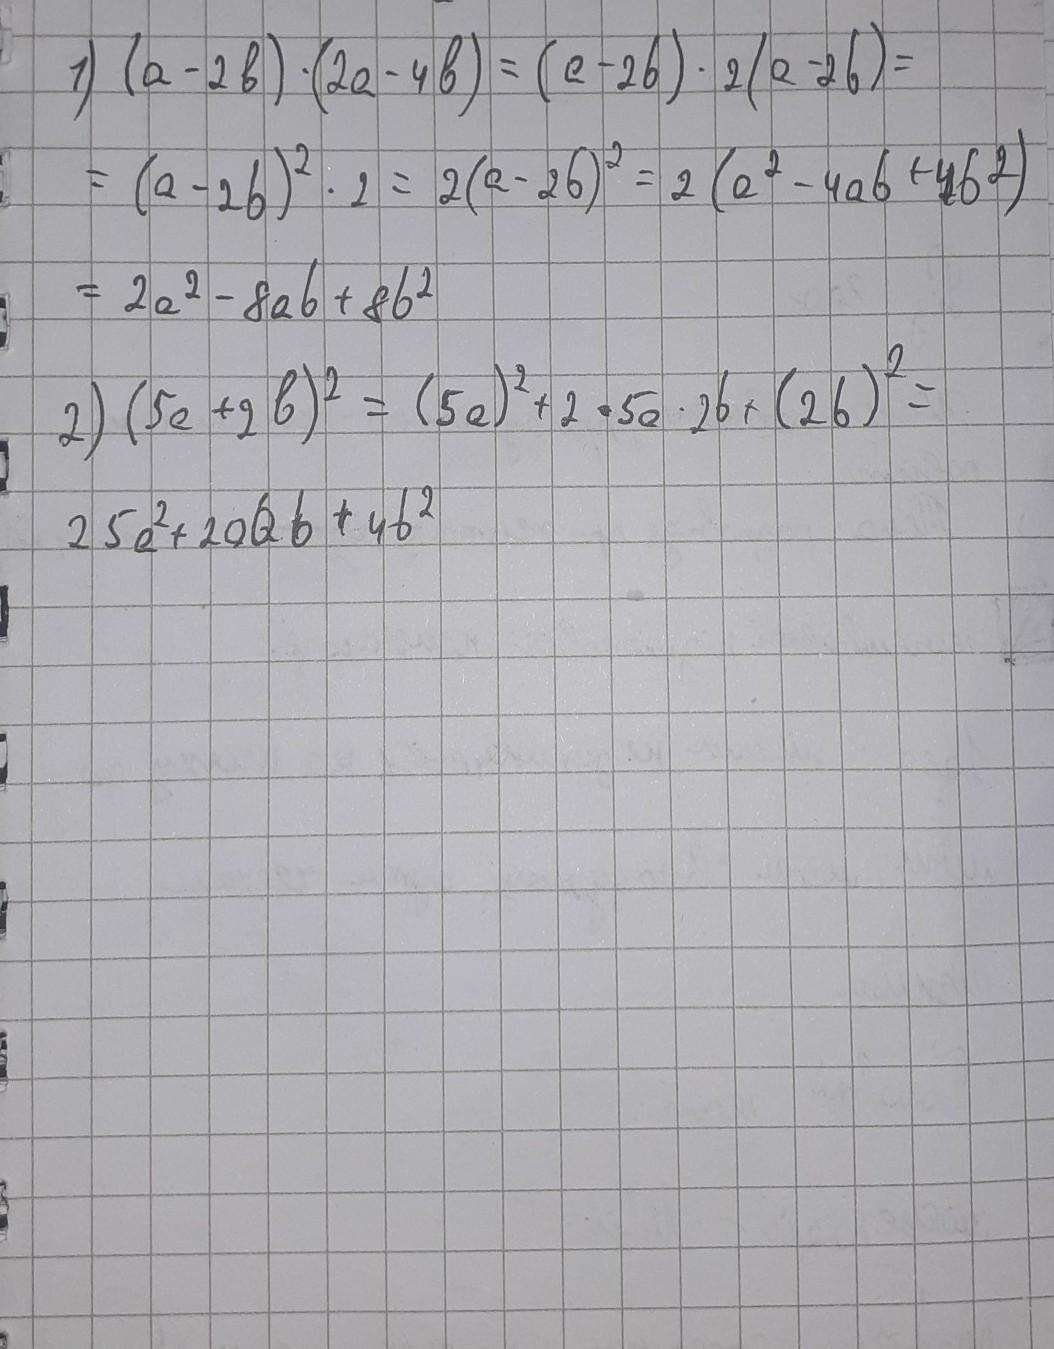 1) (a - 2b) · (2a - 4b) = (a - 2b) · 2(a - 2b) =
= (a - 2b)² · 2 = 2(a - 2b)² = 2 (a² - 4ab + 4b²)
= 2a² - 8ab + 8b²
2) (5a + 2b)² = (5a)² + 2 · 5a · 2b + (2b)² =
25a² + 20ab + 4b²